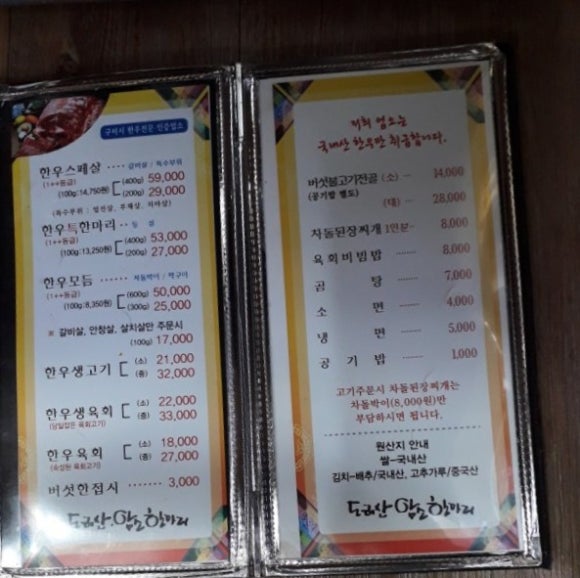 구미시 한우전문 인증업소
한우스페샬 ...... 갈비살 / 특수부위
(1++등급) (400g) 59,000
(100g:14,750원) (200g) 29,000
(특수부위 : 업진살, 부채살, 치마살)
한우특한마리 ...... 등심
(1++등급) (400g) 53,000
(100g:13,250원) (200g) 27,000
한우모듬 ...... 차돌박이 / 막구이
(1++등급) (600g) 50,000
(100g:8,350원) (300g) 25,000
※ 갈비살, 안창살, 살치살만 주문시
(100g) 17,000
한우생고기 (소) 21,000
(중) 32,000
한우생육회 (소) 22,000
(당일잡은 육회고기) (중) 33,000
한우육회 (소) 18,000
(숙성된 육회고기) (중) 27,000
버섯한접시 ...... 3,000
도리산.암소한마리
저희 업소는
국내산 한우만 취급합니다.
버섯불고기전골 (소) ... 14,000
(공기밥 별도) (대) ... 28,000
차돌된장찌개 1인분- 8,000
육회비빔밥 ...... 8,000
곰 탕 ...... 7,000
소 면 ...... 4,000
냉 면 ...... 5,000
공 기 밥 ...... 1,000
고기주문시 차돌된장찌개는
차돌박이(8,000원)만
부담하시면 됩니다.
원산지 안내
쌀-국내산
김치-배추/국내산, 고추가루/중국산
도리산 암소한마리